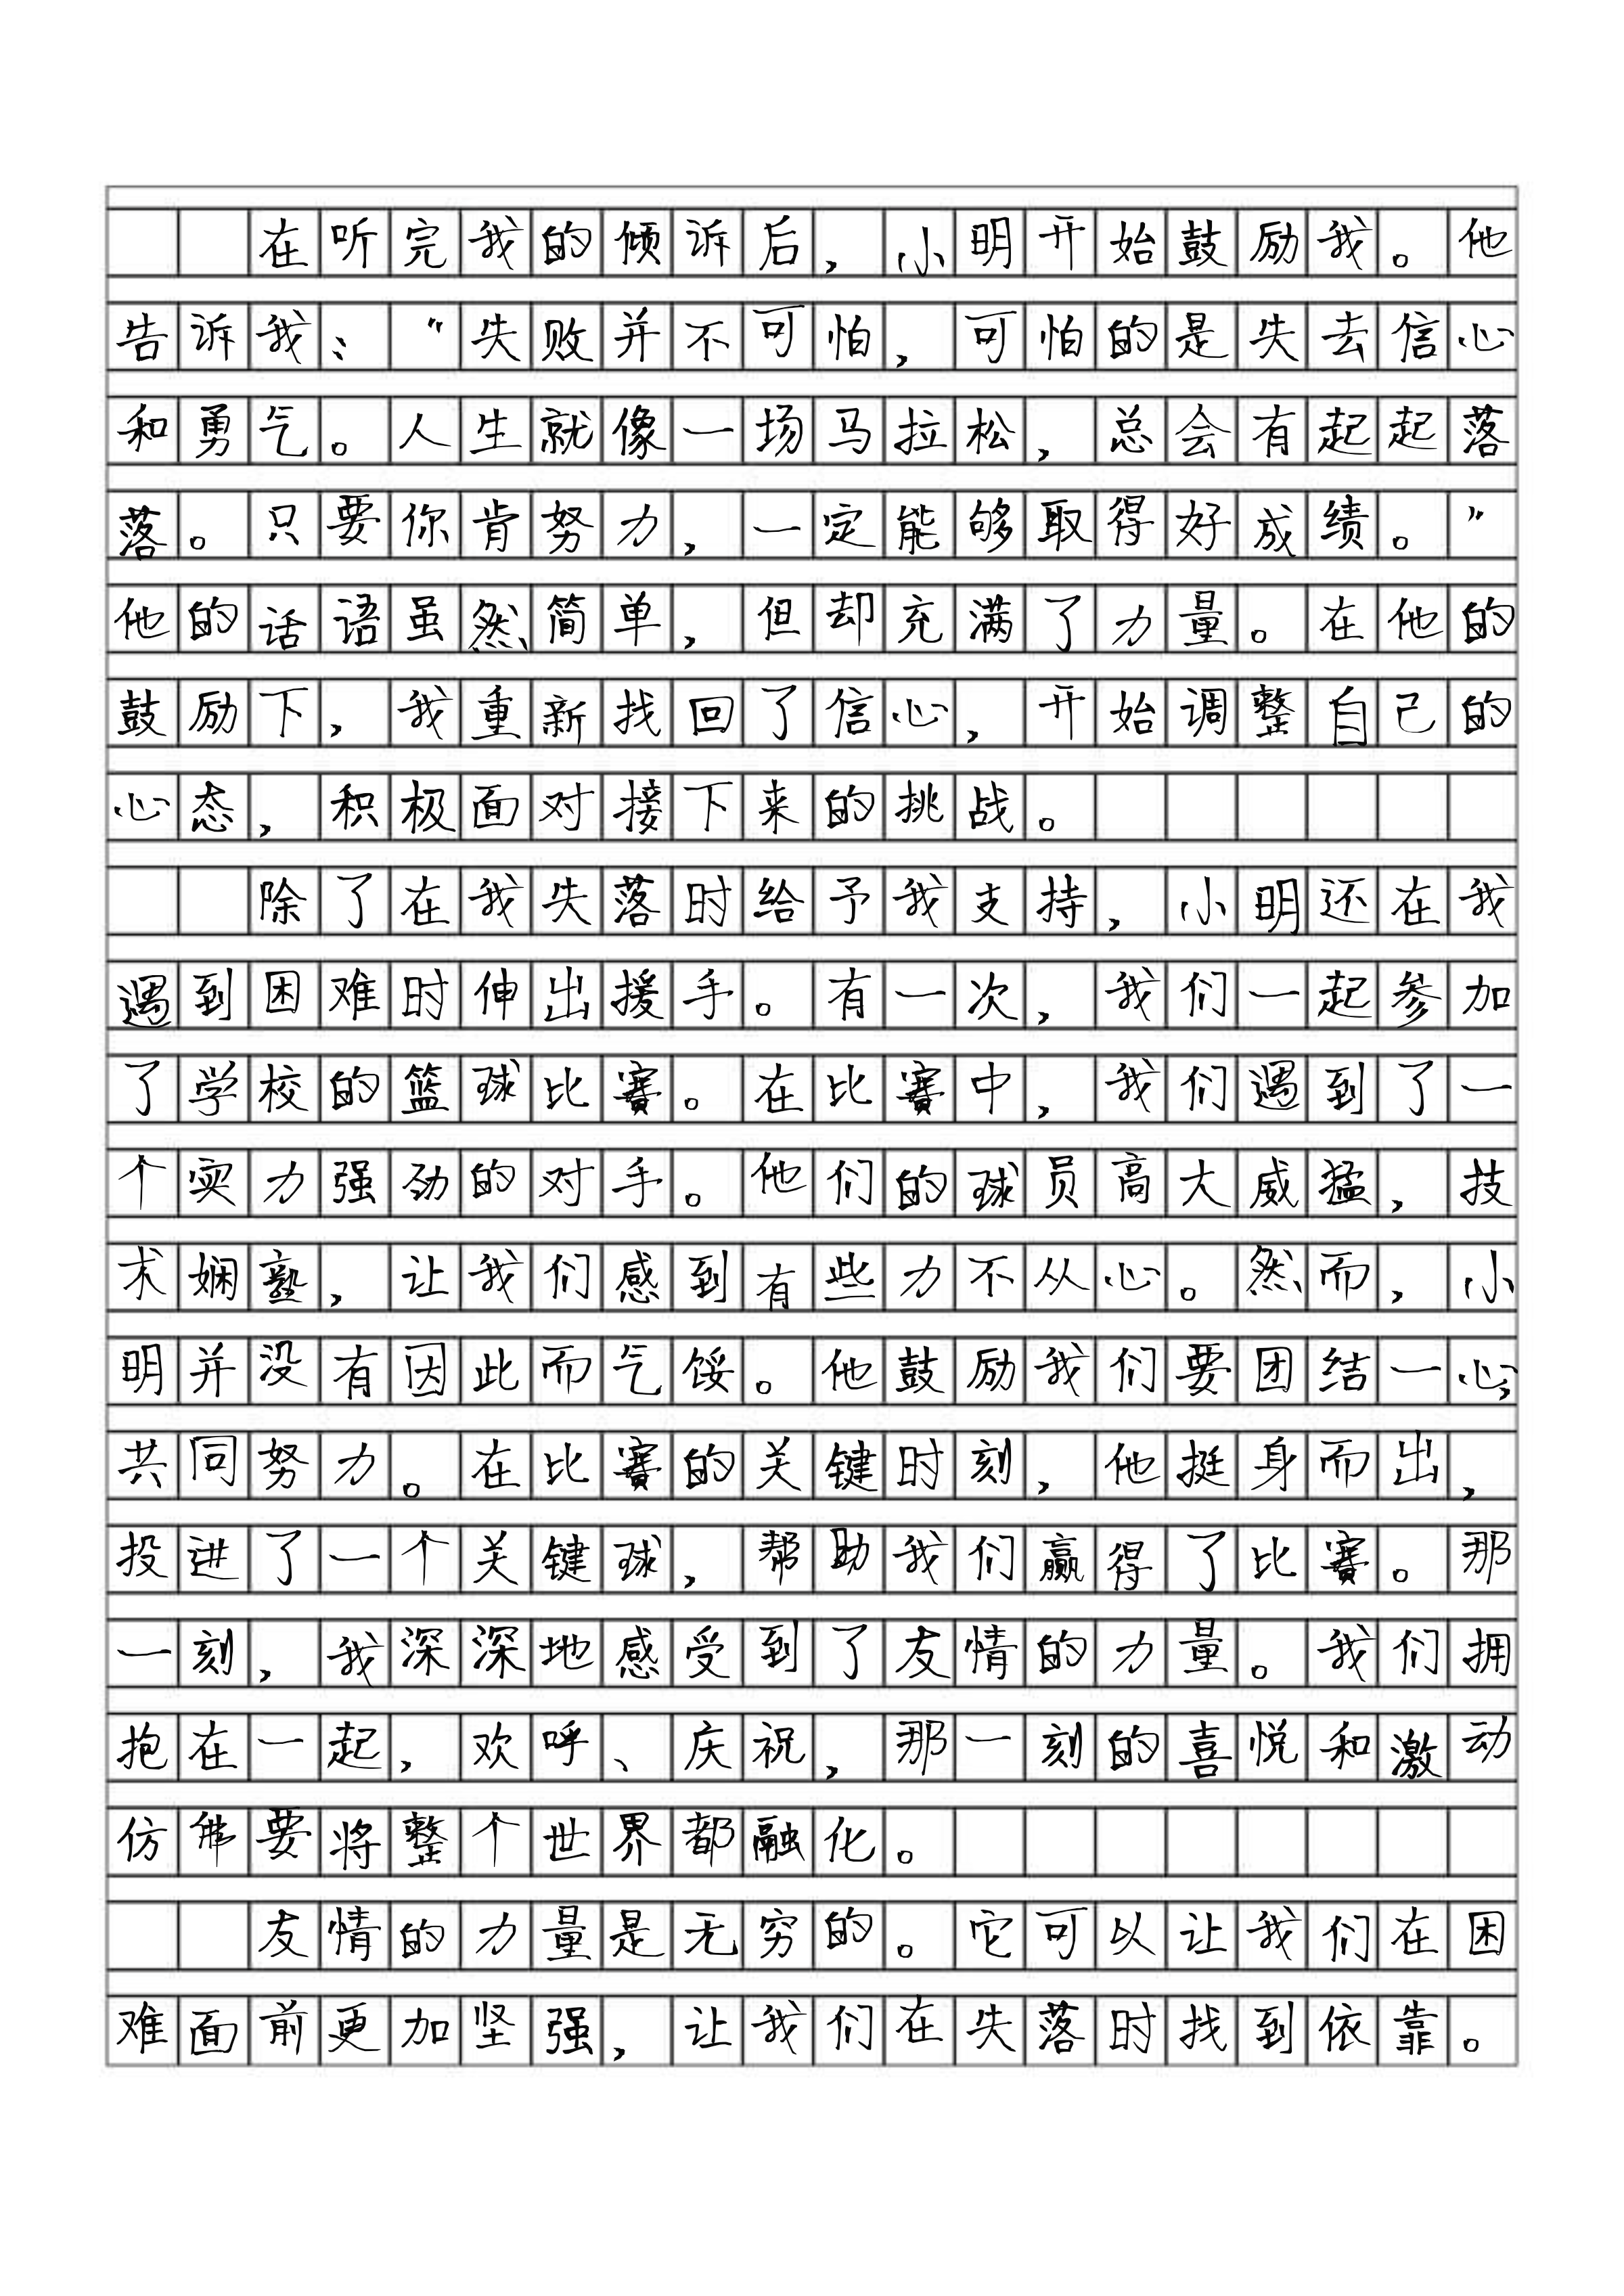 在听完我的倾诉后，小明开始鼓励我。他
告诉我：“失败并不可怕，可怕的是失去信心
和勇气。人生就像一场马拉松，总会有起起落
落。只要你肯努力，一定能够取得好成绩。”
他的话语虽然简单，但却充满了力量。在他的
鼓励下，我重新找回了信心，开始调整自己的
心态，积极面对接下来的挑战。
除了在我失落时给予我支持，小明还在我
遇到困难时伸出援手。有一次，我们一起参加
了学校的篮球比赛。在比赛中，我们遇到了一
个实力强劲的对手。他们的球员高大威猛，技
术娴熟，让我们感到有些力不从心。然而，小
明并没有因此而气馁。他鼓励我们要团结一心，
共同努力。在比赛的关键时刻，他挺身而出，
投进了一个关键球，帮助我们赢得了比赛。那
一刻，我深深地感受到了友情的力量。我们拥
抱在一起，欢呼、庆祝，那一刻的喜悦和激动
仿佛要将整个世界都融化。
友情的力量是无穷的。它可以让我们在困
难面前更加坚强，让我们在失落时找到依靠。